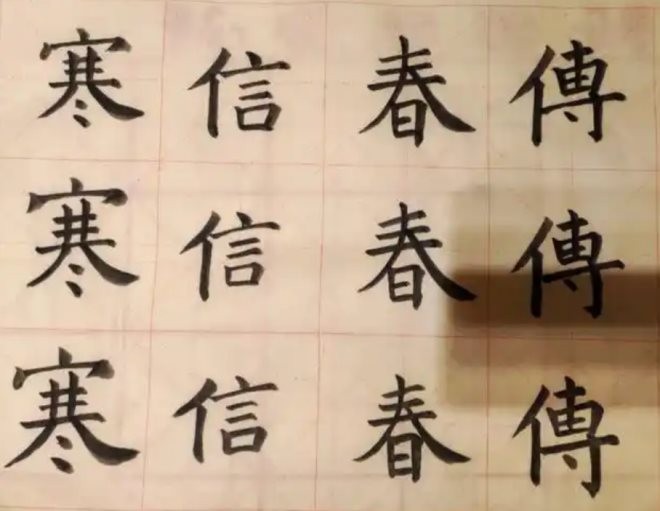 傳傳傳
春春春
信信信
寒寒寒